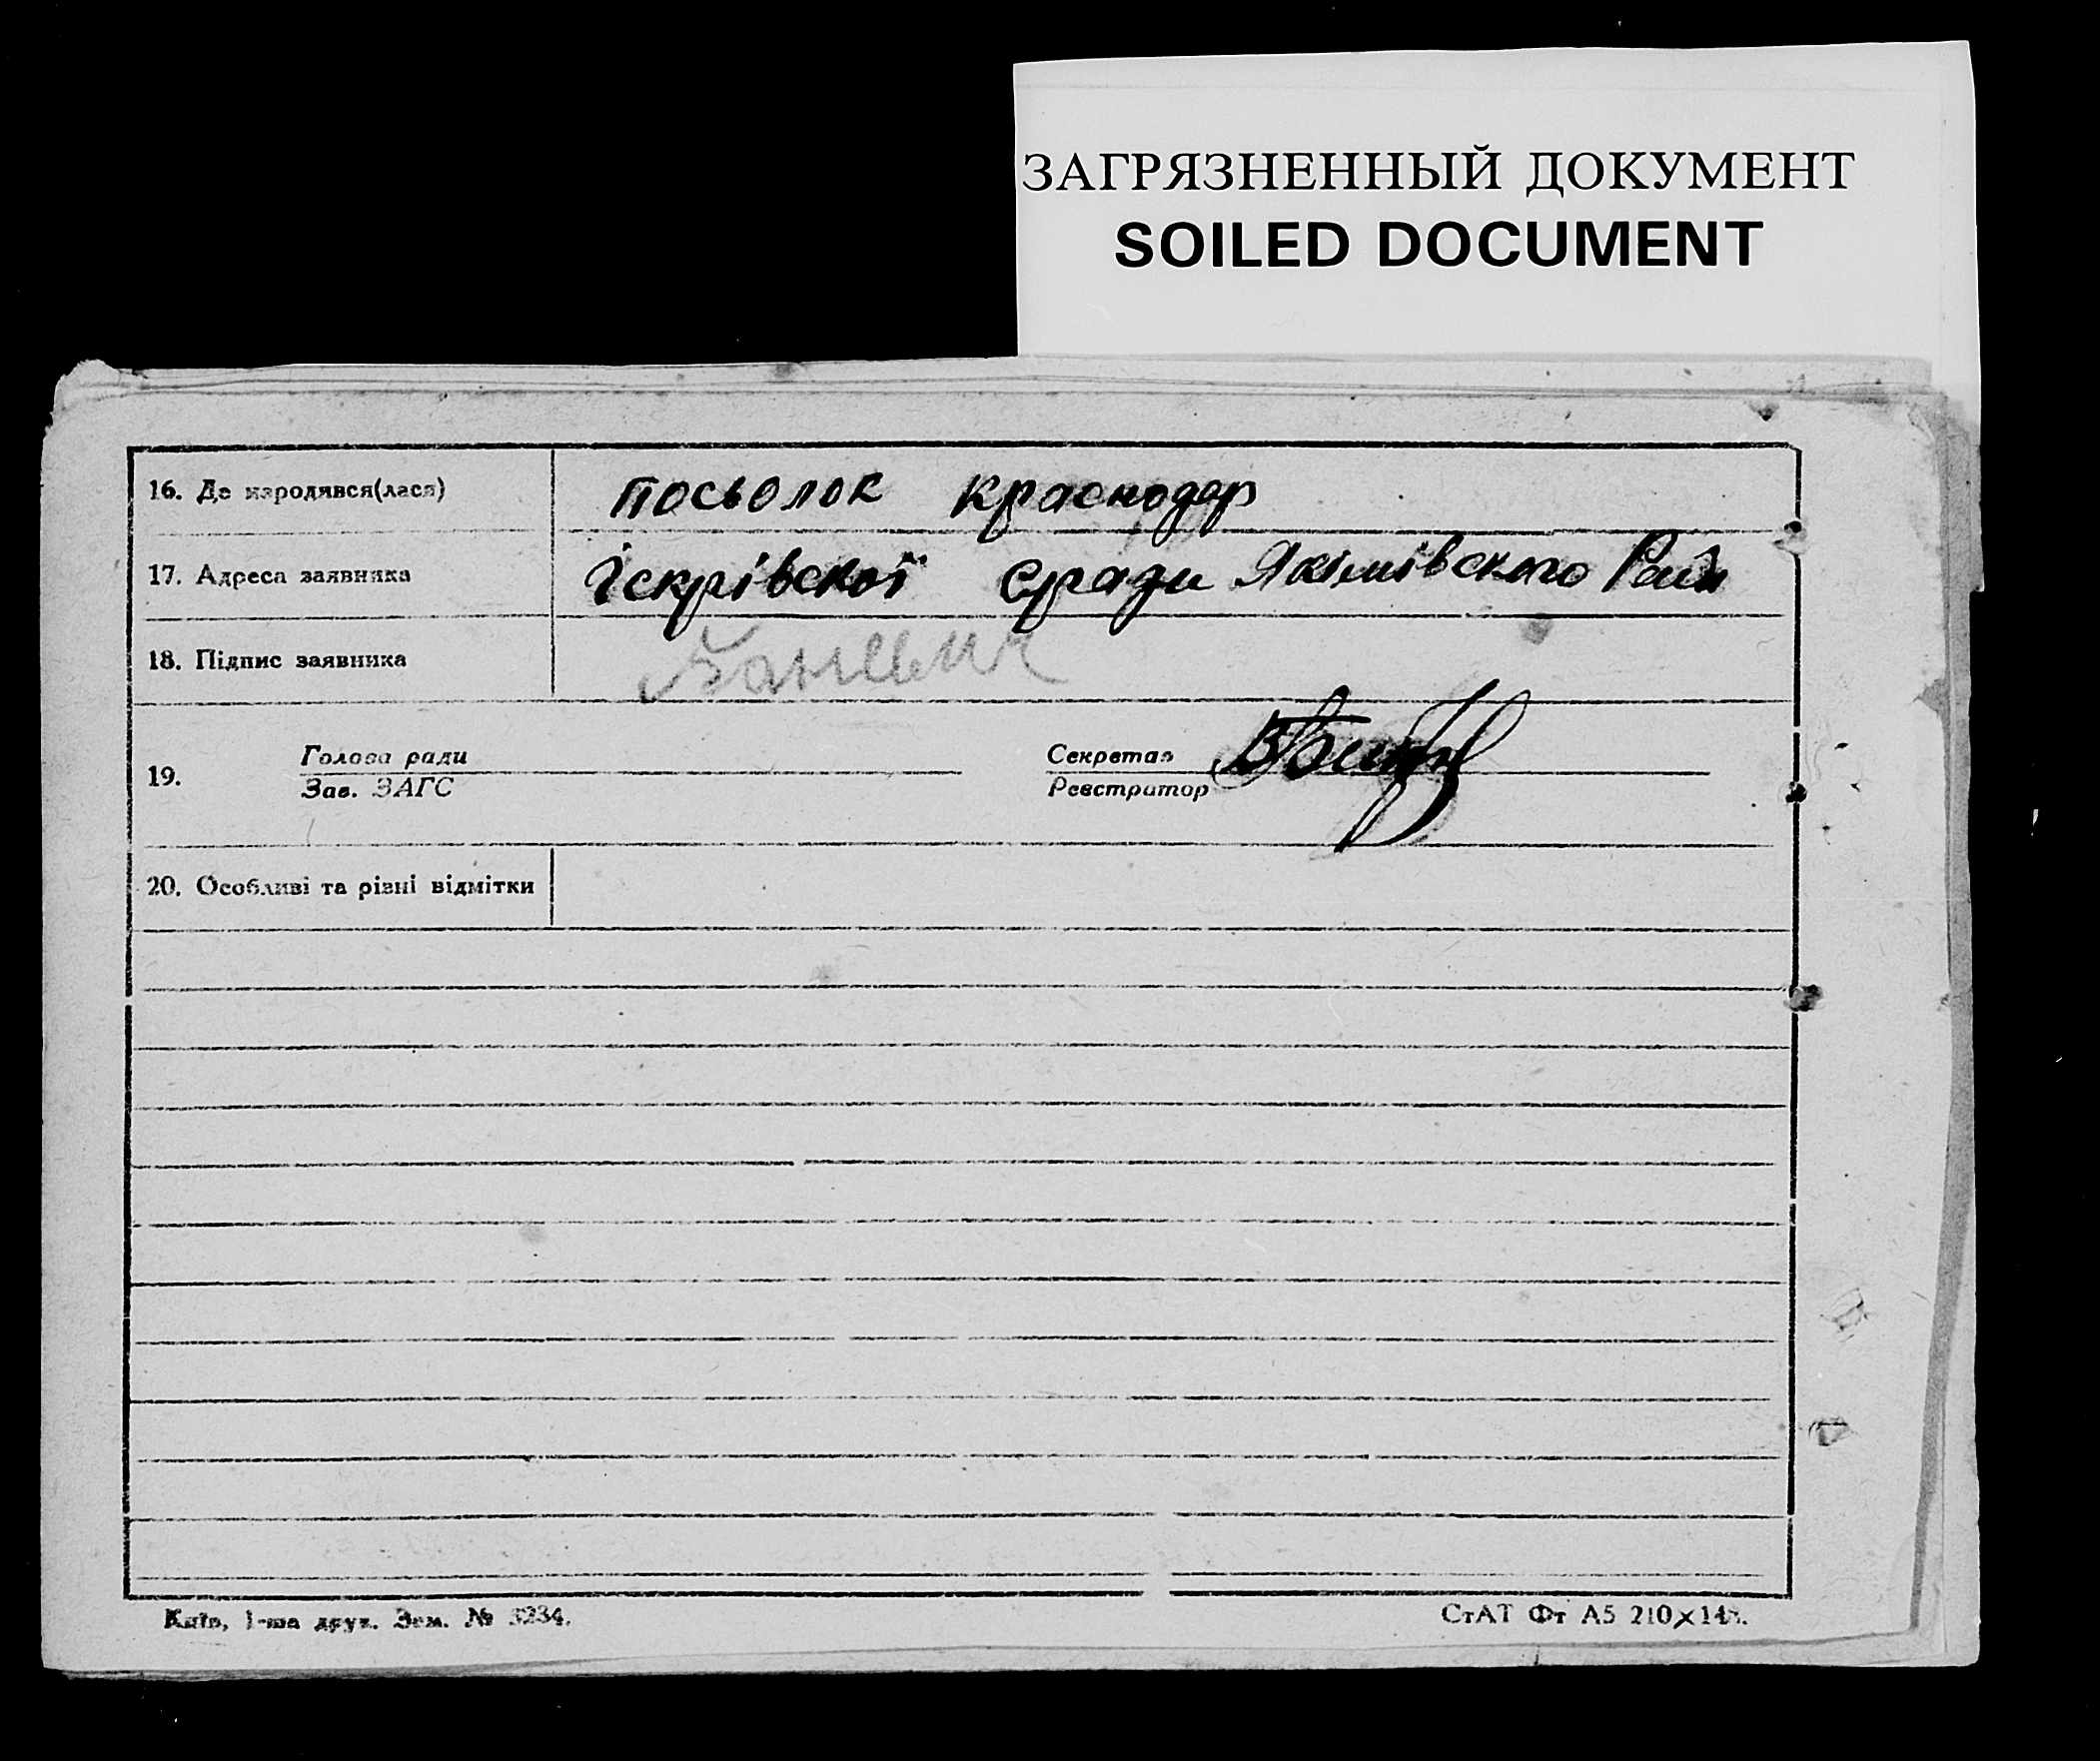 ЗАГРЯЗНЕННЫЙ ДОКУМЕНТ
SOILED DOCUMENT
16. Де народився(лася) посьолок Краснодар
17. Адреса заявника Іскрівської с/ради Якимівського Рай
18. Підпис заявника
19. Голова ради Секретар
Зав. ЗАГС Реєстратор
20. Особливі та різні відмітки
Київ, 1-ша друк. Зам. № 3234.
СтАТ Фт А5 210×148.